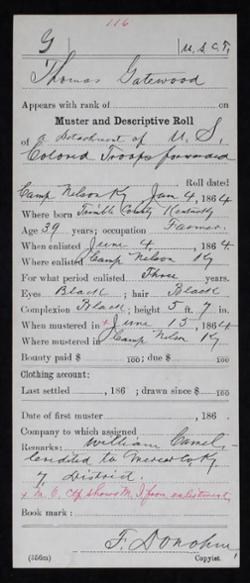 116
G | U. S. C. T.
Thomas Gatewood
Appears with rank of on
Muster and Descriptive Roll
of a Detachment of U. S.
Colored Troops forward
Roll dated
Camp Nelson Ky Jan 4, 1864
Where born Trimble County Kentucky
Age 39 years; occupation Farmer
When enlisted June 4, 1864
Where enlisted Camp Nelson Ky
For what period enlisted Three years.
Eyes Black; hair Black
Complexion Black; height 5 ft. 7 in.
When mustered in + June 13, 1864
Where mustered in Camp Nelson Ky
Bounty paid $ 100; due $ 100
Clothing account:
Last settled , 186 ; drawn since $ 100
Date of first muster , 186
Company to which assigned
Remarks: William
Credited to Mercer Co, Ky
7, District.
x M. C. Cf shows M. I from enlistment
Book mark:
F. Donohue
(356m) Copyist.